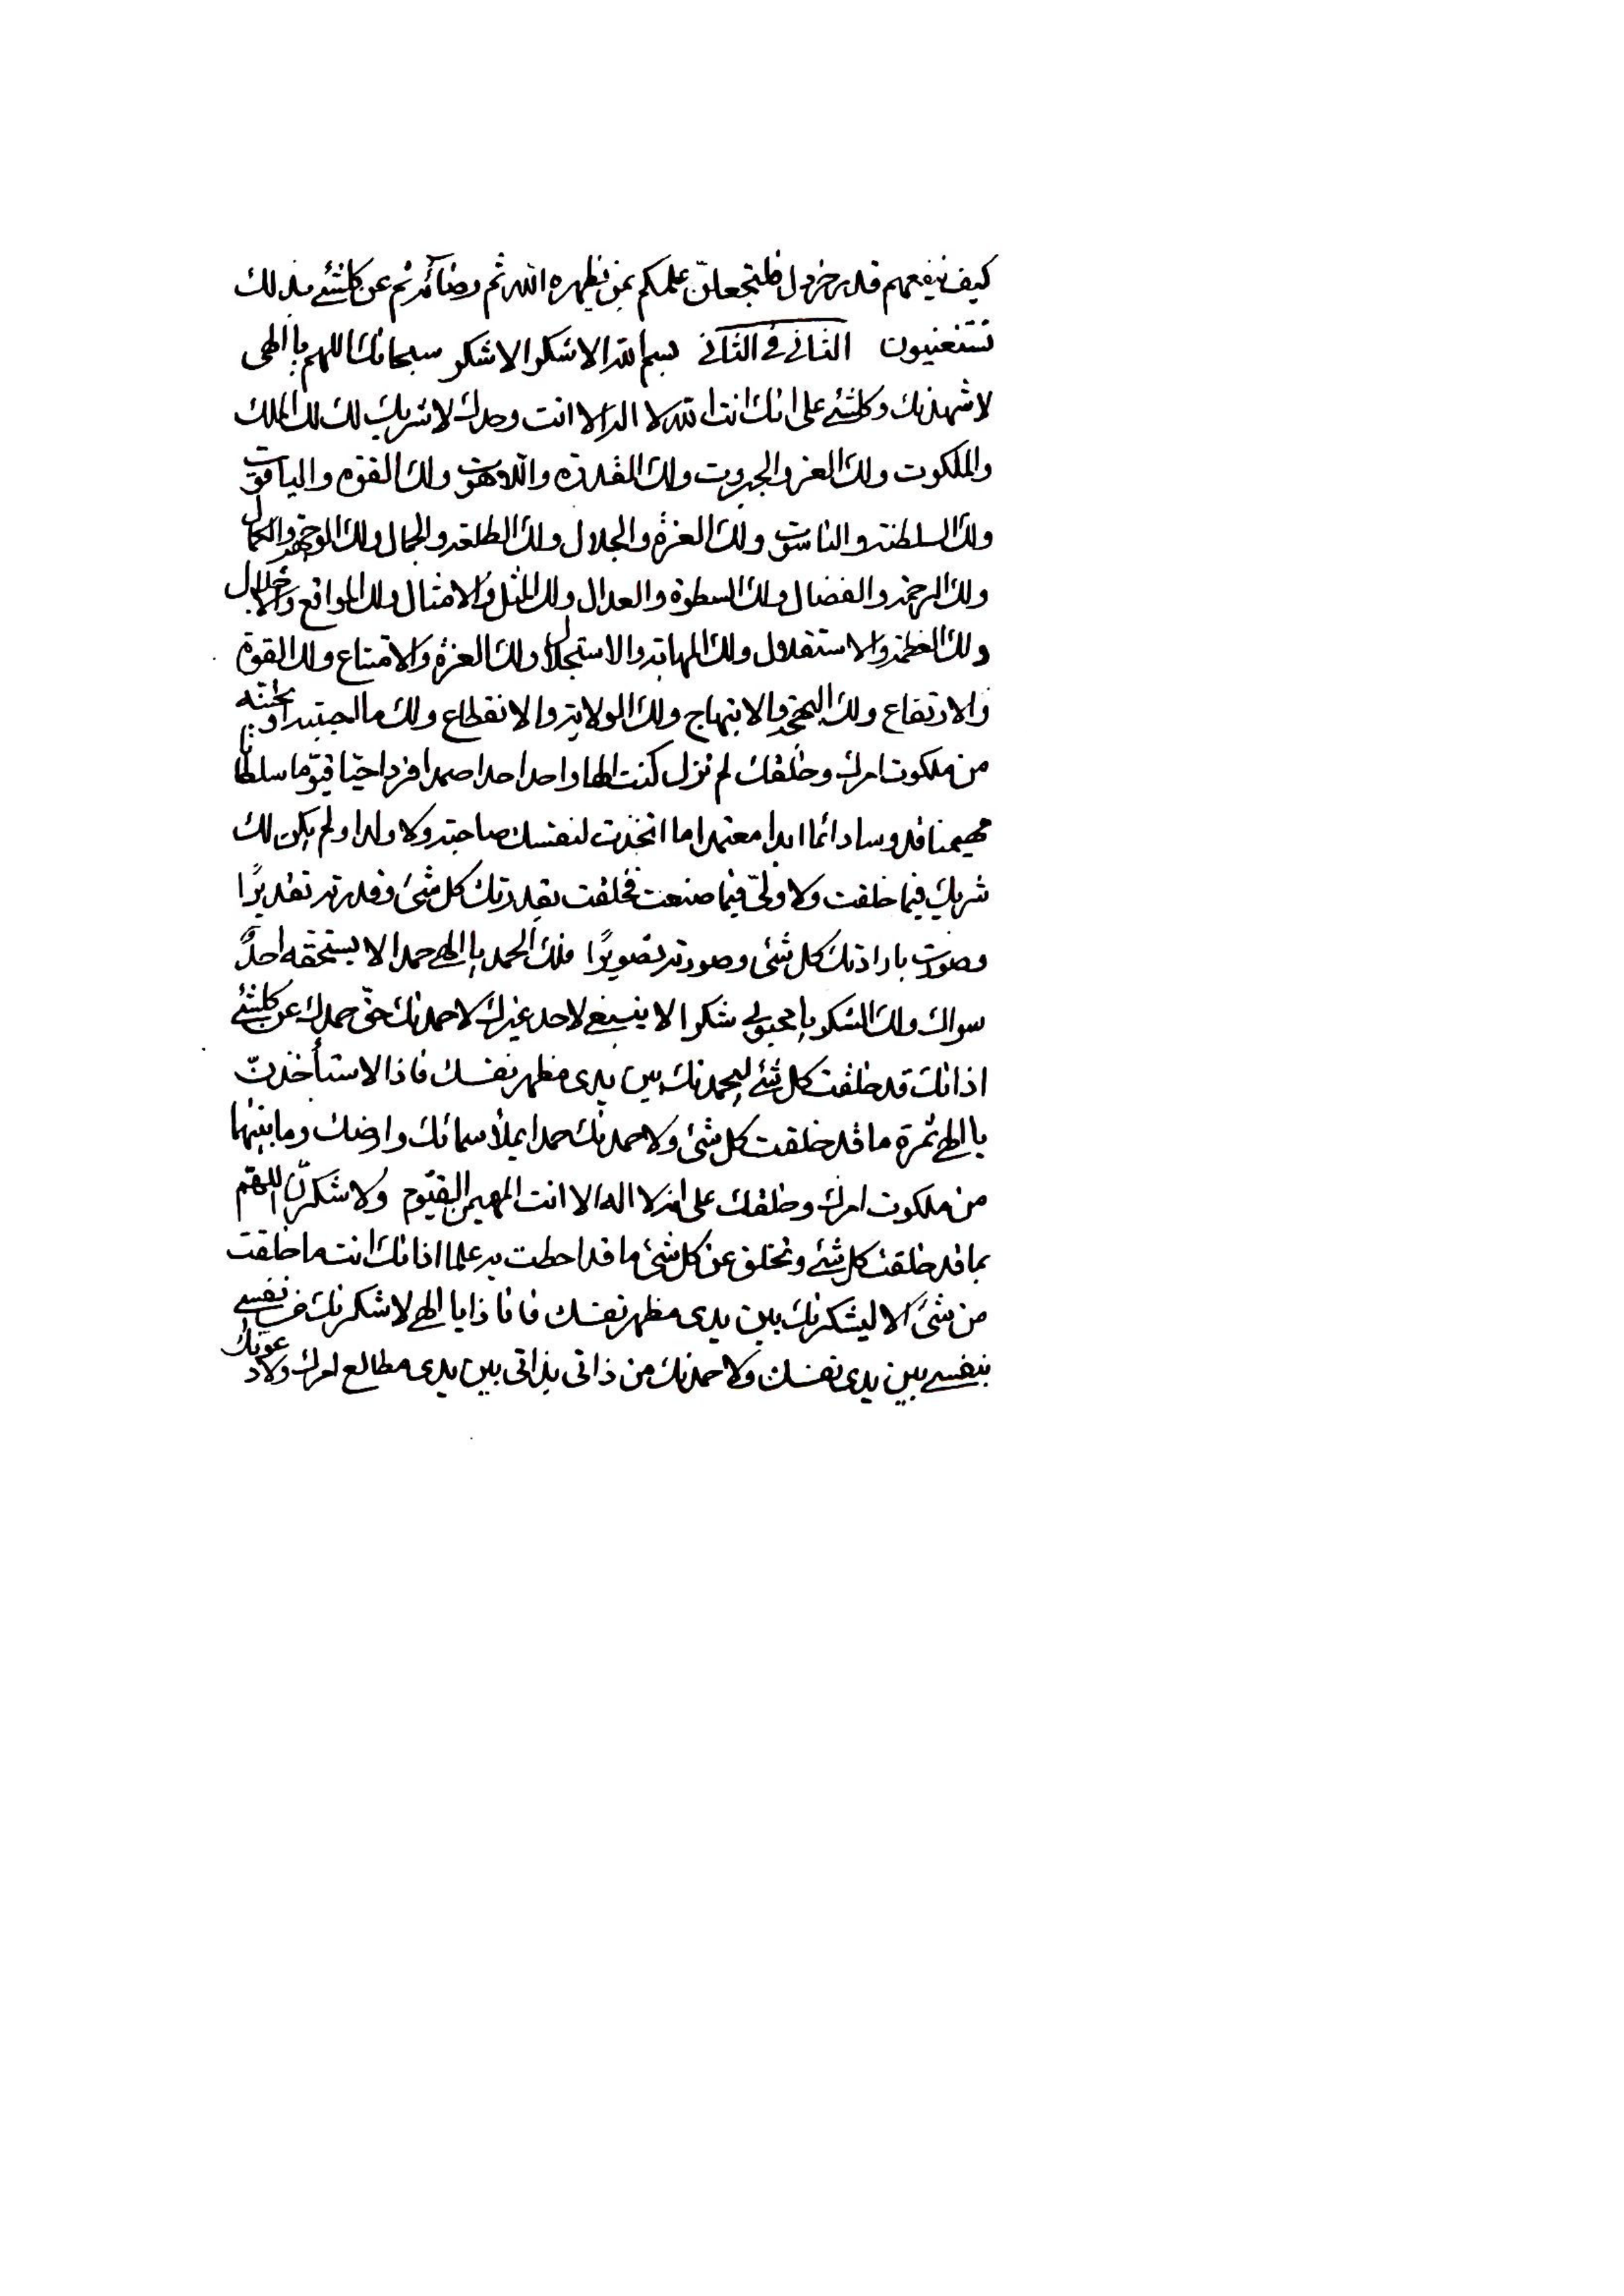 كيف ينفعهم قدر خردل فلتجعلنّ علمكم بمن يظهره الله ثم رضائه ثم عن كلشئ بذلك
تستغنيون الثاني في الثاني بسم الله الاشكر الاشكر سبحانك اللهم يا الهي
لاشهدنك وكلشئ على انك انت الله لا اله الا انت وحدك لا شريك لك لك الملك
والملكوت ولك العز والجبروت ولك القدرة واللاهوت ولك القوة والياقوت
ولك السلطنة والناسوت ولك العزة والجلال ولك الطلعة والجمال ولك الوجهة والكمال
ولك الرحمة والفضال ولك السطوة والعدال ولك المثل والامثال ولك المواقع والاجلال
ولك العظمة والاستقلال ولك المهابة والاستجلال ولك العزة والامتناع ولك القوة
والارتفاع ولك البهجة والابتهاج ولك الولاية والانقطاع ولك ما احببته او تحبنه
من ملكوت امرك وخلقك لم تزل كنت الها واحدا احدا صمدا فردا حيّا قيّوما سلطانا
مهيمنا قدوسا دائما ابدا معتمدا ما اتخذت لنفسك صاحبة ولا ولدا ولم يكن لك
شريك فيما خلقت ولا وليّ فيما صنعت فخلقت بقدرتك كل شئ وقدرته تقديرًا
وصورت بارادتك كل شئ وصورته تصويرًا فلك الحمد يا الهي حمدا لا يستحقه احدٌ
سواك ولك الشكر يا محبوبي شكرا لا ينبغي لاحد غيرك لاحمدنك حق حمدك عن كلشئ
اذ انك قد خلقت كل شئ ليحمدنك بين يدي مظهر نفسك فاذا لاستأخذنّ
يا الهي ثمرة ما قد خلقت كل شئ ولاحمدنك حمدا يملأ سمائك وارضك وما بينهما
من ملكوت امرك وخلقك على انه لا اله الا انت المهيمن القيّوم ولاشكرنّك اللهم
بما قد خلقت كل شئ وتخلق عن كل شئ ما قد احطت به علما اذ انك انت ما خلقت
من شئ الا ليشكرنك بين يدي مظهر نفسك فانا ذا يا الهي لاشكرنك عن نفسي
بنفسي بين يدي نفسك ولاحمدنك من ذاتي بذاتي بين يدي مطالع امرك ولادعونك